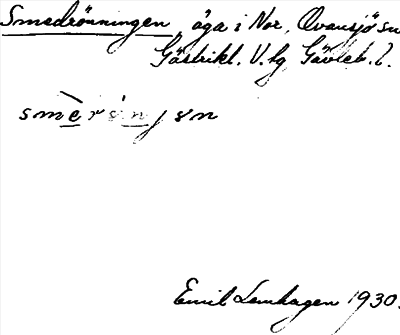 Smedrönningen äga i Nor, Ovansjö sn
Gästrikl. V. tg Gävleb. l.
smèrönjən
Emil Lenhagen 1930.